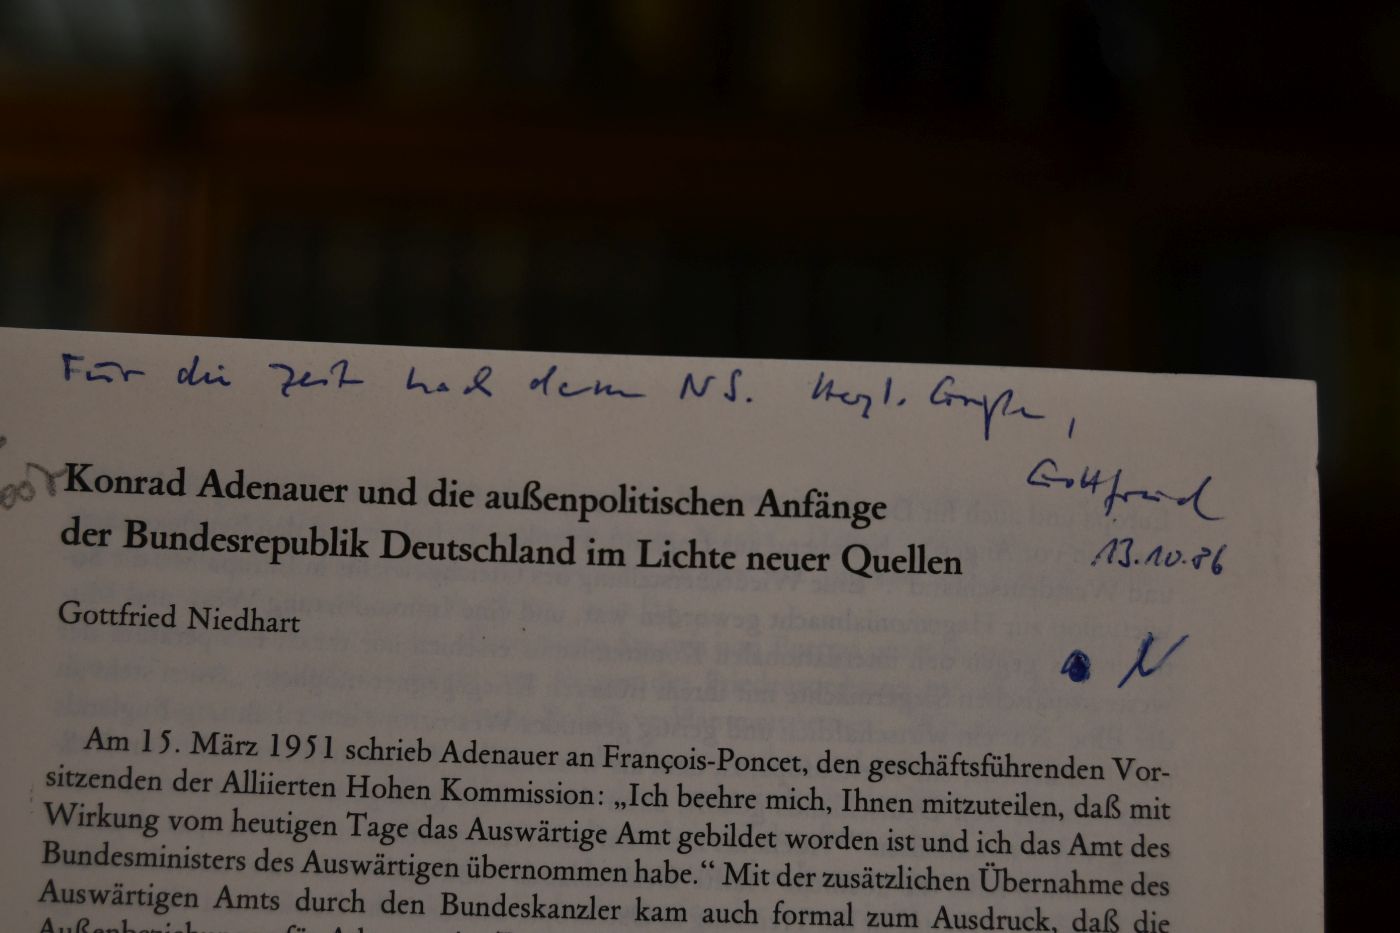 Für die Zeit nach dem NS. Herzl. Grüße,
Gottfried
13.10.86
Konrad Adenauer und die außenpolitischen Anfänge
der Bundesrepublik Deutschland im Lichte neuer Quellen
Gottfried Niedhart
N
Am 15. März 1951 schrieb Adenauer an François-Poncet, den geschäftsführenden Vor-
sitzenden der Alliierten Hohen Kommission: „Ich beehre mich, Ihnen mitzuteilen, daß mit
Wirkung vom heutigen Tage das Auswärtige Amt gebildet worden ist und ich das Amt des
Bundesministers des Auswärtigen übernommen habe.“ Mit der zusätzlichen Übernahme des
Auswärtigen Amts durch den Bundeskanzler kam auch formal zum Ausdruck, daß die